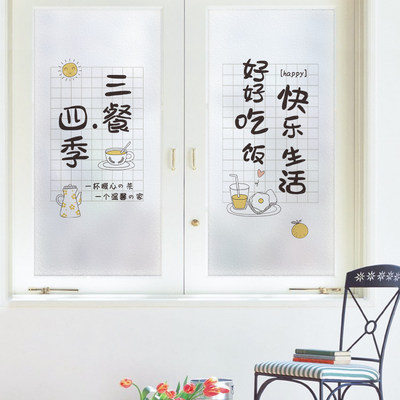 三餐
四.季
一杯暖心の茶
一个温馨の家
好好吃饭
[happy]
快乐生活